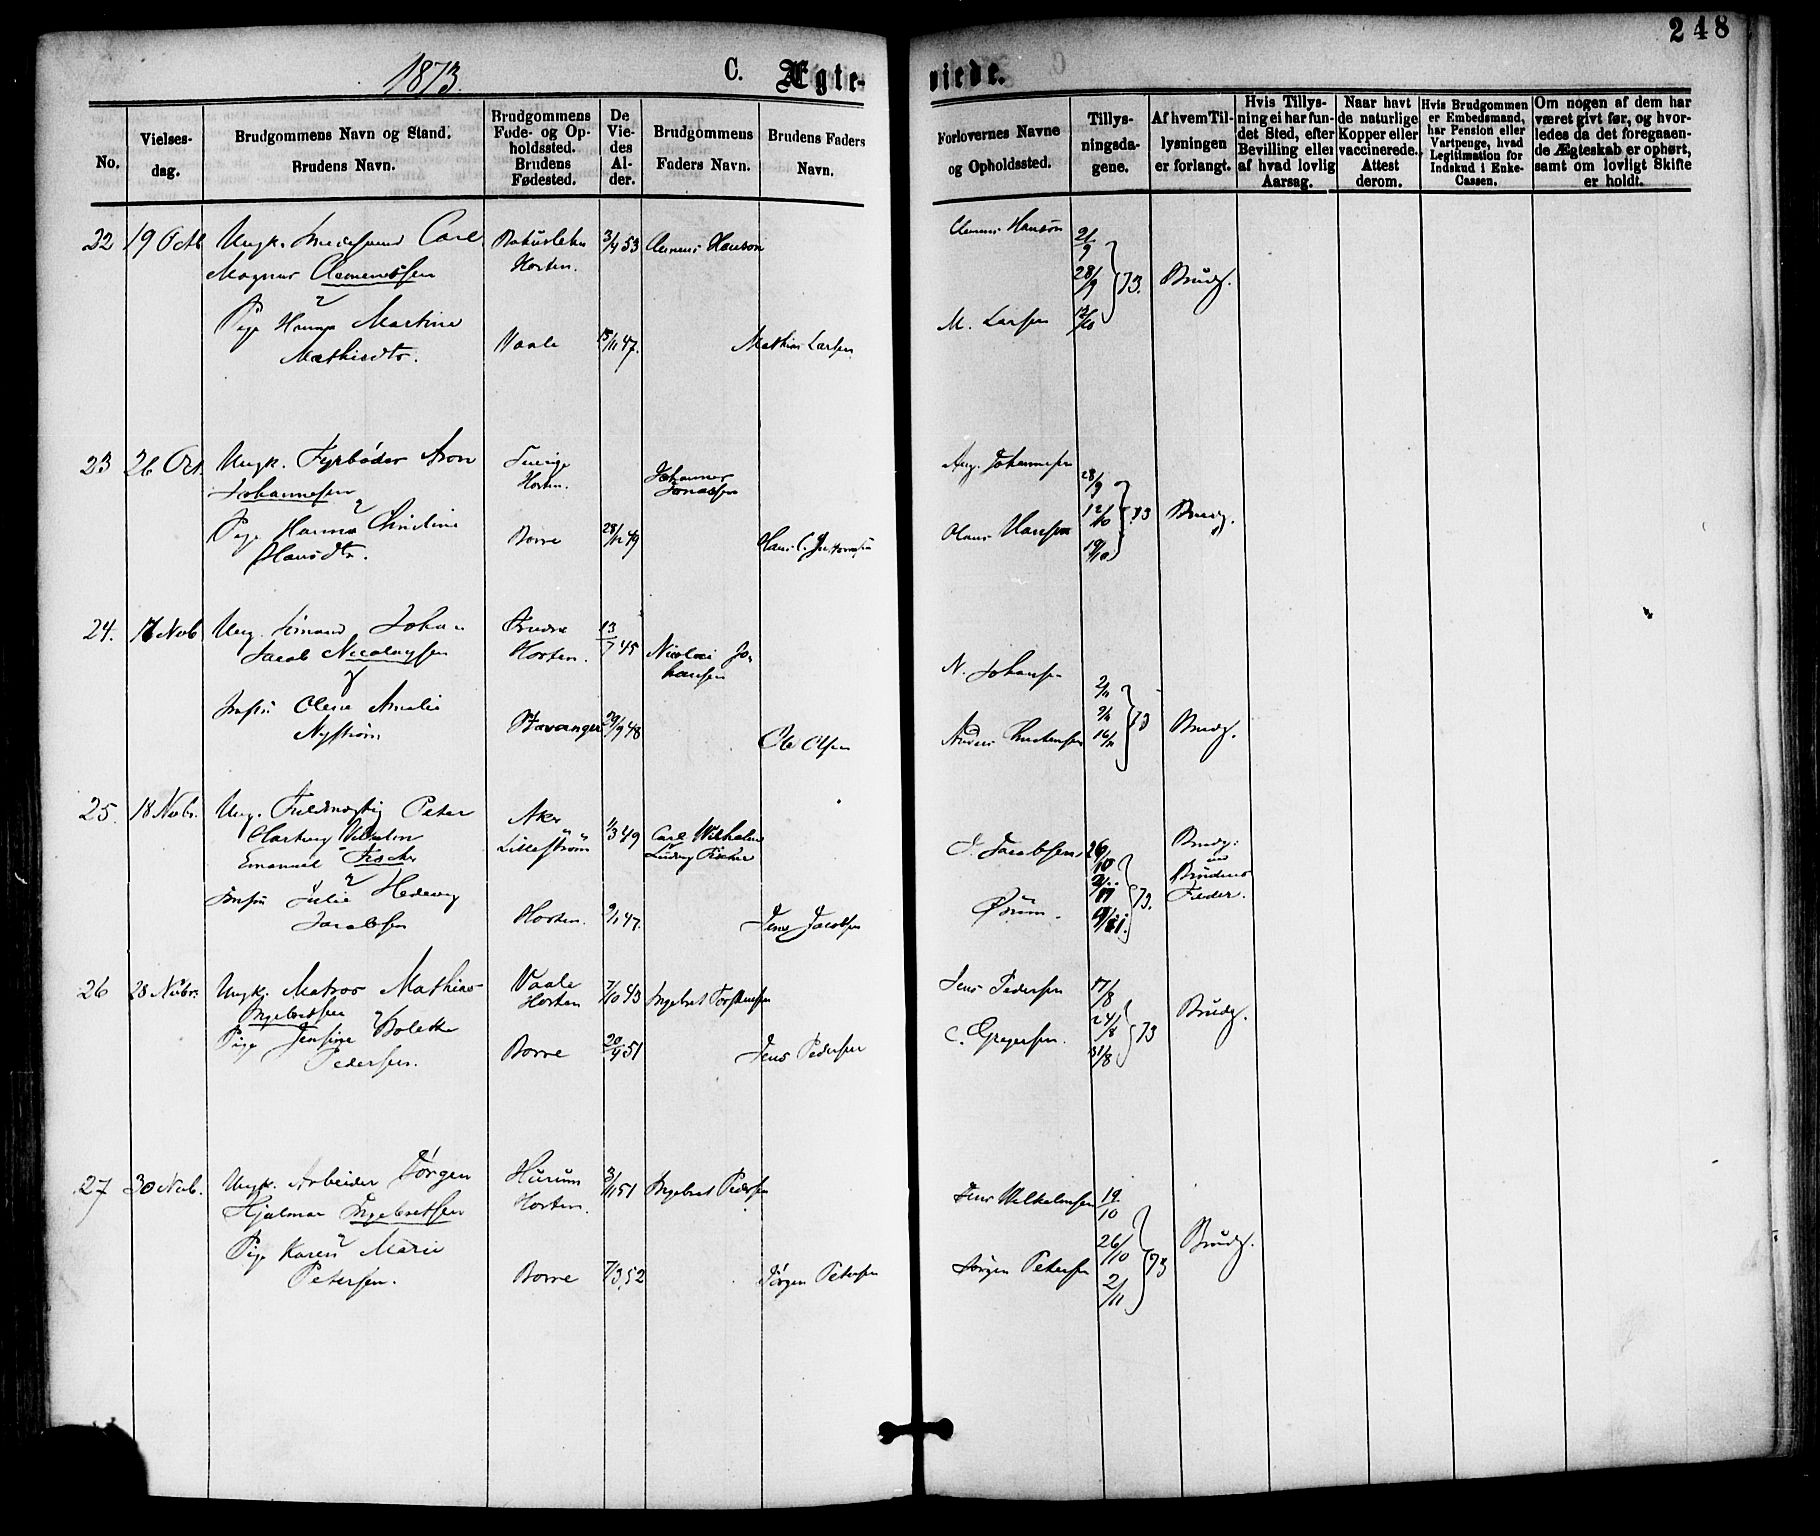 248
1873.
C. Ægte-
viede.
No.
Vielses-
dag.
Brudgommens Navn og Stand.
Brudens Navn.
Brudgommens
Føde- og Op-
holdssted.
Brudens
Fødested.
De
Vie-
des
Al-
der.
Brudgommens
Faders Navn.
Brudens Faders
Navn.
Forlovernes Navne
og Opholdssted.
Tillys-
ningsda-
gene.
Af hvem Til-
lysningen
er forlangt.
Hvis Tillys-
ning ei har fun-
det Sted, efter
Bevilling eller
af hvad lovlig
Aarsag.
Naar havt
de naturlige
Kopper eller
vaccinerede.
Attest
derom.
Hvis Brudgommen
er Embedsmand,
har Pension eller
Vartpenge, hvad
Legitimation for
Indskud i Enke-
Cassen.
Om nogen af dem har
været givt før, og hvor-
ledes da det foregaaen-
de Ægteskab er ophørt,
samt om lovligt Skifte
er holdt.
22 19 Octb Ungk. Carl
Magnus Clemenssen
Horten. 3/4 53 Clemens Hanson
Pige Hanna Martine
Mathisdtr.
Vaale 15/11 47. Mathias Larsen
Clemens Hanson
M. Larsen
21/9
28/9 73.
12/10
Brudg.
23 26 Oct. Ungk. Fyrbøder Aron
Johannesen
Sverige
Horten.
Johannes
Jonassen
Pige Hanna Christine
Hansdtr.
Borre 28/12 49
Aug. Johannesen
Olaus Hansen
28/9
12/10 73
19/10
Brudg.
24. 17 Novb Ung. Sømand Johan
Jacob Nicolaysen
Horten. 13/7 45 Nicolai Jo-
hansen
Jomfru Olena Amalia
Nystrøm
Stavanger 29/9 48
Ole Olsen
N. Johansen
2/11
9/11 73
16/11
Brudg.
25. 18 Novbr. Ung. Fuldmægtig Peter
Hartvig Vilhelm
Emanuel Fischer
Aker
Lillestrøm 1/3 49 Carl Wilhelm
Ludvig Fischer
Jomfru Julie Hedevig
Jacobsen
Horten. 9/1 47. Jens Jacobsen
J. Jacobsen
Ørum.
26/10
2/11 73.
9/11.
Brudg.
Brudens
Fader.
26 28 Novbr. Ungk. Matros Mathias
Ingebretsen
Vaale
Horten 7/10 43 Ingebret Torstensen
Pige Jensine Bolette
Pedersen.
Borre 20/4 51 Jens Pedersen
Jens Pedersen
C. Gregersen.
17/8
24/8 73
31/8
Brudg.
27 30 Novb. Ungk. Arbeider Jørgen
Hjalmar Ingebretsen
Hurum
Horten. 3/11 51 Ingebret Pedersen
Pige Karen Marie
Petersen.
Borre 7/3 52 Jørgen Petersen
Jens Wilhelmsen
Jørgen Petersen
19/10
26/10 73
2/11
Brudg.